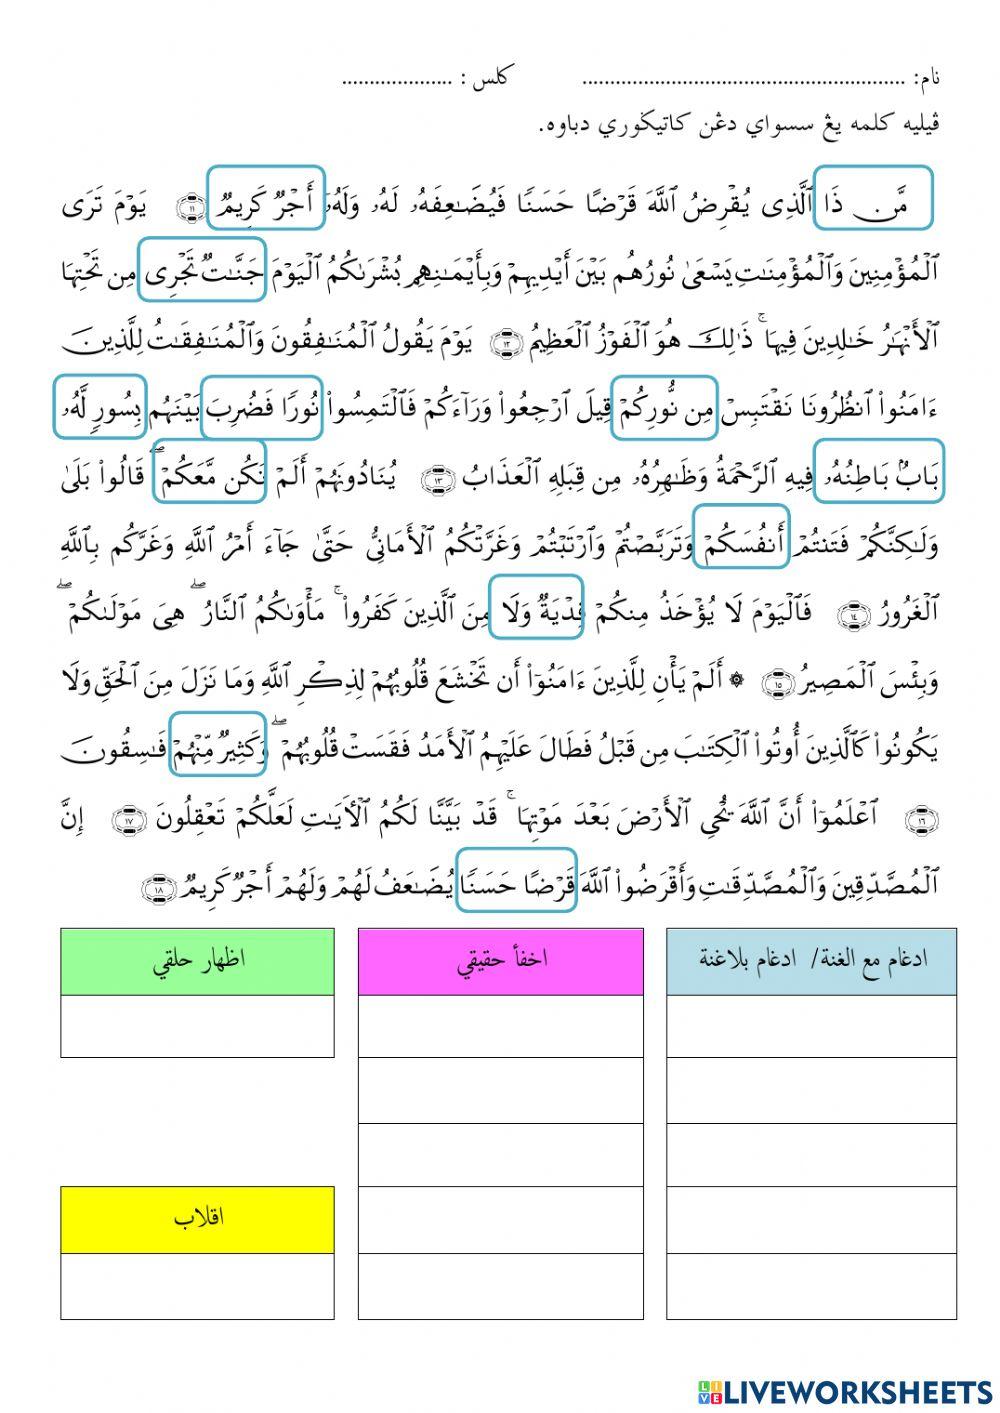 نام: ........................................................... كلس : ....................
ڤيليه كلمه يڠ سسواي دڠن كاتيكوري دباوه.
مَّن ذَا ٱلَّذِى يُقْرِضُ ٱللَّهَ قَرْضًا حَسَنًا فَيُضَـٰعِفَهُۥ لَهُۥ وَلَهُۥٓ أَجْرٌ كَرِيمٌ ١١ يَوْمَ تَرَى
ٱلْمُؤْمِنِينَ وَٱلْمُؤْمِنَـٰتِ يَسْعَىٰ نُورُهُم بَيْنَ أَيْدِيهِمْ وَبِأَيْمَـٰنِهِم بُشْرَىٰكُمُ ٱلْيَوْمَ جَنَّـٰتٌ تَجْرِى مِن تَحْتِهَا
ٱلْأَنْهَـٰرُ خَـٰلِدِينَ فِيهَا ۚ ذَٰلِكَ هُوَ ٱلْفَوْزُ ٱلْعَظِيمُ ١٢ يَوْمَ يَقُولُ ٱلْمُنَـٰفِقُونَ وَٱلْمُنَـٰفِقَـٰتُ لِلَّذِينَ
ءَامَنُوا۟ ٱنظُرُونَا نَقْتَبِسْ مِن نُّورِكُمْ قِيلَ ٱرْجِعُوا۟ وَرَآءَكُمْ فَٱلْتَمِسُوا۟ نُورًا فَضُرِبَ بَيْنَهُم بِسُورٍ لَّهُۥ
بَابٌۢ بَاطِنُهُۥ فِيهِ ٱلرَّحْمَةُ وَظَـٰهِرُهُۥ مِن قِبَلِهِ ٱلْعَذَابُ ١٣ يُنَادُونَهُمْ أَلَمْ نَكُن مَّعَكُمْ ۖ قَالُوا۟ بَلَىٰ
وَلَـٰكِنَّكُمْ فَتَنتُمْ أَنفُسَكُمْ وَتَرَبَّصْتُمْ وَٱرْتَبْتُمْ وَغَرَّتْكُمُ ٱلْأَمَانِىُّ حَتَّىٰ جَآءَ أَمْرُ ٱللَّهِ وَغَرَّكُم بِٱللَّهِ
ٱلْغَرُورُ ١٤ فَٱلْيَوْمَ لَا يُؤْخَذُ مِنكُمْ فِدْيَةٌ وَلَا مِنَ ٱلَّذِينَ كَفَرُوا۟ ۚ مَأْوَىٰكُمُ ٱلنَّارُ ۖ هِىَ مَوْلَىٰكُمْ ۖ
وَبِئْسَ ٱلْمَصِيرُ ١٥ ۞ أَلَمْ يَأْنِ لِلَّذِينَ ءَامَنُوٓا۟ أَن تَخْشَعَ قُلُوبُهُمْ لِذِكْرِ ٱللَّهِ وَمَا نَزَلَ مِنَ ٱلْحَقِّ وَلَا
يَكُونُوا۟ كَٱلَّذِينَ أُوتُوا۟ ٱلْكِتَـٰبَ مِن قَبْلُ فَطَالَ عَلَيْهِمُ ٱلْأَمَدُ فَقَسَتْ قُلُوبُهُمْ ۖ وَكَثِيرٌ مِّنْهُمْ فَـٰسِقُونَ
١٦ ٱعْلَمُوٓا۟ أَنَّ ٱللَّهَ يُحْىِ ٱلْأَرْضَ بَعْدَ مَوْتِهَا ۚ قَدْ بَيَّنَّا لَكُمُ ٱلْـَٔايَـٰتِ لَعَلَّكُمْ تَعْقِلُونَ ١٧ إِنَّ
ٱلْمُصَّدِّقِينَ وَٱلْمُصَّدِّقَـٰتِ وَأَقْرَضُوا۟ ٱللَّهَ قَرْضًا حَسَنًا يُضَـٰعَفُ لَهُمْ وَلَهُمْ أَجْرٌ كَرِيمٌ ١٨
ادغام مع الغنة/ ادغام بلاغنة
اخفأ حقيقي
اظهار حلقي
اقلاب
LIVEWORKSHEETS